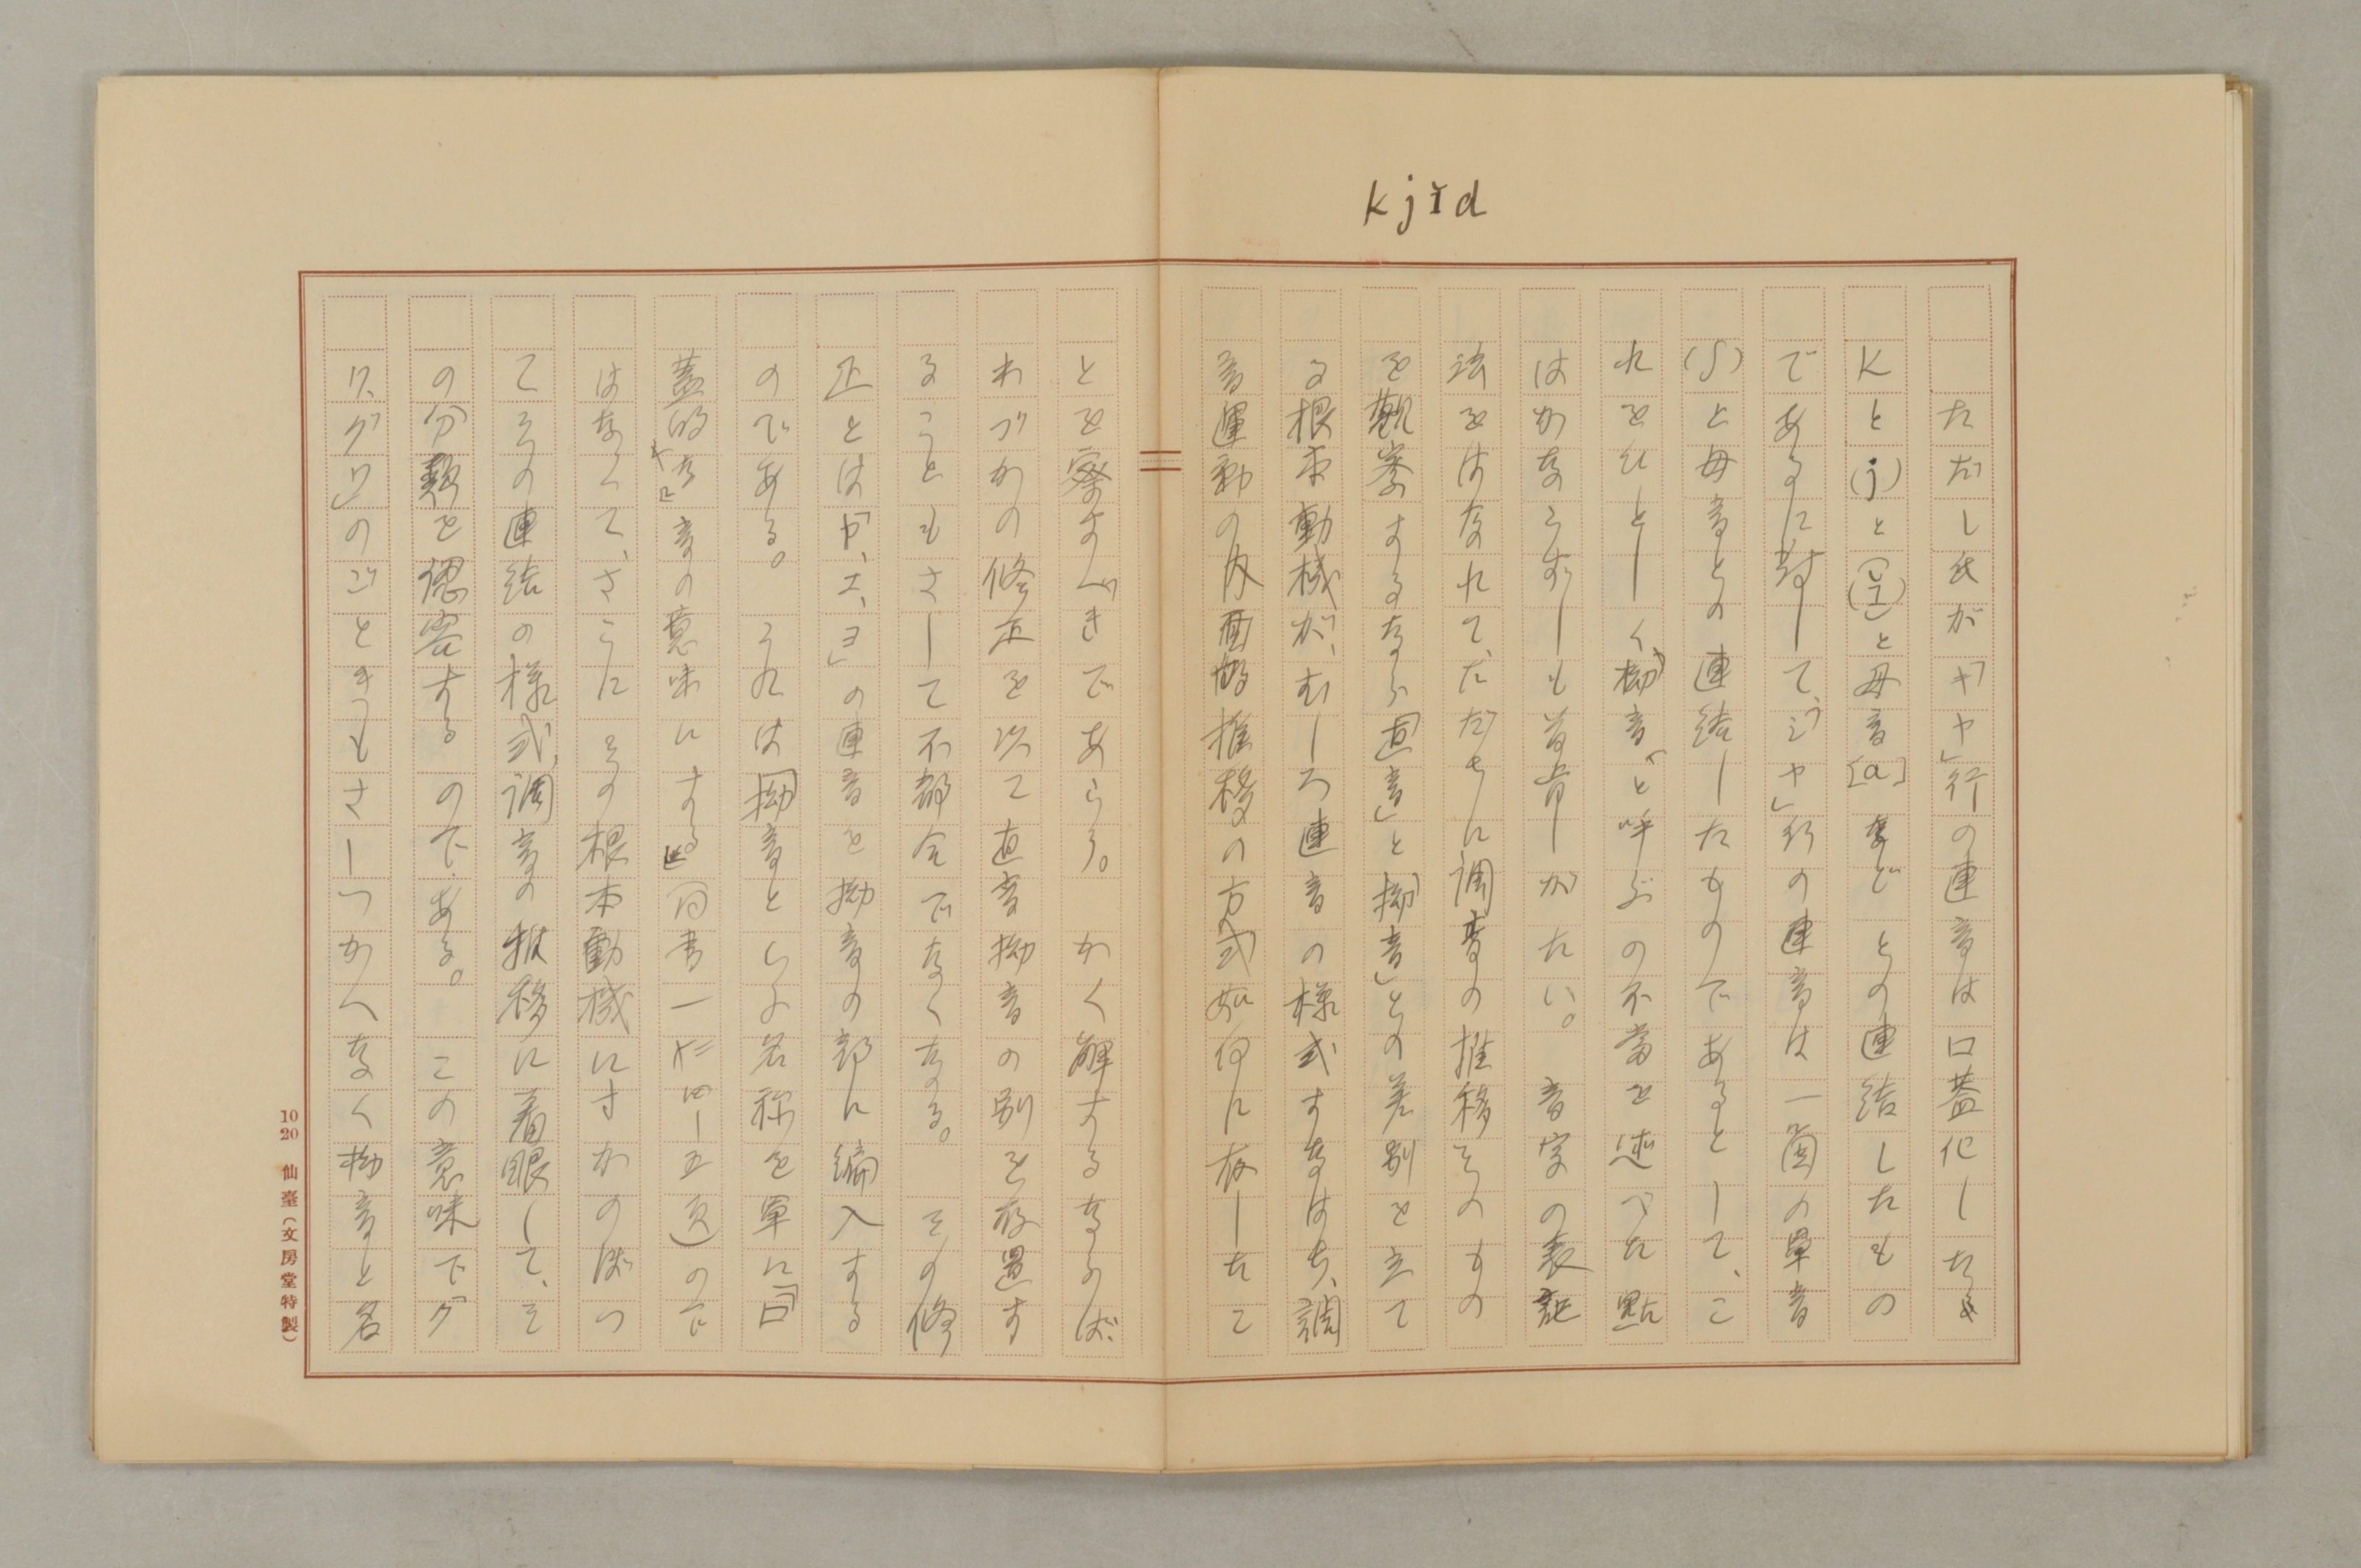 kjɪ̆d
ただし氏が「キャ」行の連音は口蓋化したる
Kと(j)と(ɪ̆)と母音[a]などとの連結したもの
であるに対して、「シャ」行の連音は一箇の単音
(ʃ)と母音との連結したものであるとして、こ
れをひとしく「拗音」と呼ぶの不當を述べた點
はかならずしも首肯しがたい。 音字の表記
法をはなれて、ただちに調音の推移そのもの
を觀察するなら「直音」と「拗音」との差別を立て
る根本動機が、むしろ連音の様式すなはち、調
音運動の内面的推移の方式如何に存したこ
とを察すべきであらう。 かく解するならば、
わづかの修正を以て直音拗音の別を存置す
ることもさして不都合でなくなる。 その修
正とは「ヤ、ユ、ヨ」の連音を拗音の部に編入する
のである。 それは「拗音といふ名称を單に「口
蓋的な」音の意味にする」(同書一 四—五頁)ので
はなくて、さらにその根本動機にさかのぼつ
てその連結の様式、調音の推移に着眼して、そ
の分類を認容するのである。 この意味で「ク
ワ、グワ」のごときつもさしつかへなく拗音と名
10 20 仙臺(文房堂特製)